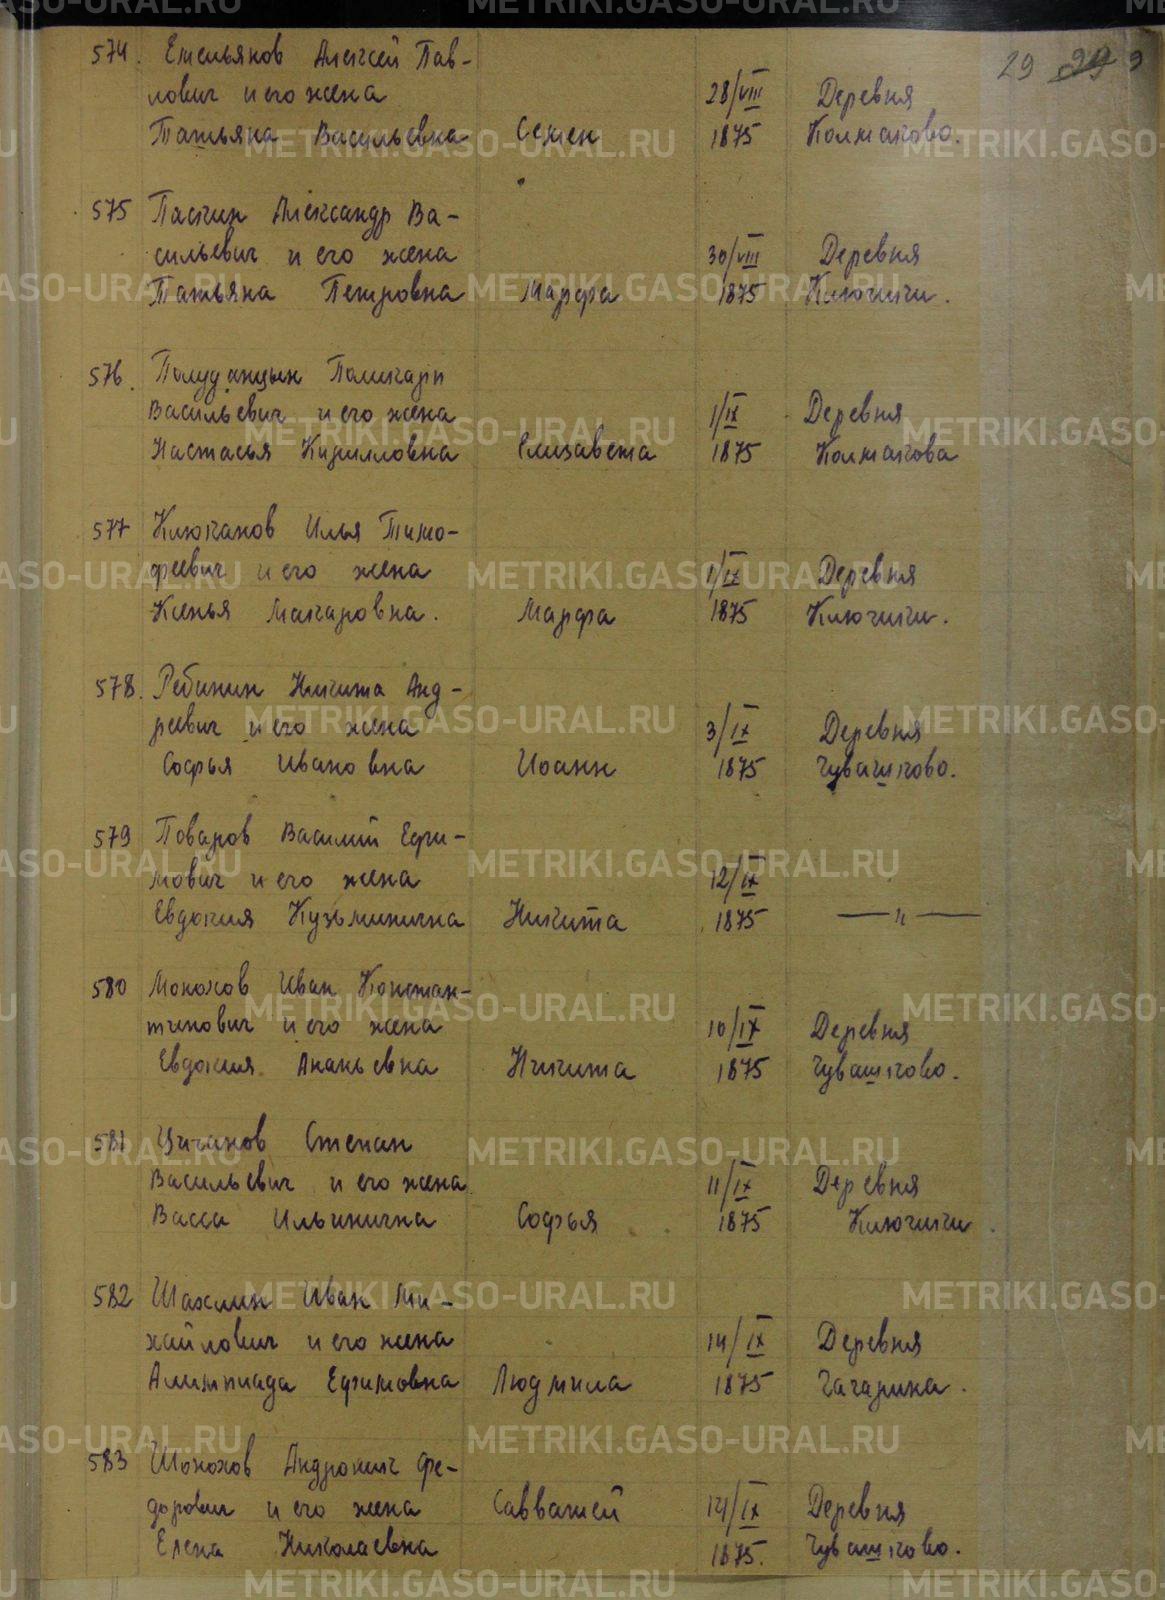 29
574. Емельянов Алексей Пав-
лович и его жена
Татьяна Васильевна Семен 28/VIII 1875 Деревня Колмаково.
575 Пасткин Александр Ва-
сильевич и его жена
Татьяна Петровна Марфа 30/VIII 1875 Деревня Ключики.
576. Полуданцын Поликарп
Васильевич и его жена
Настасья Кирилловна Елизавета 1/IX 1875 Деревня Колмакова
577 Клюканов Илья Тимо-
феевич и его жена
Ксенья Макаровна. Марфа 1/IX 1875 Деревня Ключики.
578. Ребинин Никита Анд-
реевич и его жена
Софья Ивановна Иоанн 3/IX 1875 Деревня Чувашково.
579 Поваров Василий Ефи-
мович и его жена
Евдокия Кузьминична Никита 12/IX 1875 —— " ——
580 Монохов Иван Констан-
тинович и его жена
Евдокия Ананьевна Никита 10/IX 1875 Деревня Чувашково.
581 Циганов Степан
Васильевич и его жена
Васса Ильинична Софья 11/IX 1875 Деревня Ключики.
582 Шахлин Иван Ми-
хайлович и его жена
Алимпиада Ефимовна Людмила 14/IX 1875 Деревня Чагарина.
583 Шонохов Андроник Фе-
дорович и его жена
Елена Николаевна Савватей 14/IX 1875. Деревня Чувашково.
METRIKI.GASO-URAL.RU